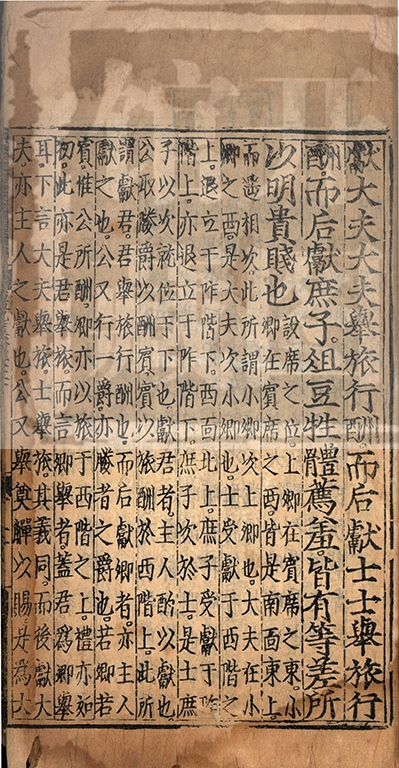 獻大夫大夫舉旅行酬而后獻士士舉旅行
酬而后獻庶子俎豆牲體薦羞皆有等差所
以明貴賤也
設席之位上卿在賓席之東小
卿在賓席之西皆是南面東上
而遙相次此所謂小卿次上卿也大夫在小
卿之西是大夫次小卿也士受獻于西階之
上退立于阼階下西面北上庶子受獻于阼
階上亦退立于阼階下庶子次於士是士庶
子以次就位于下也獻君者主人酌以獻也
公取媵爵以酬賓賓以旅酬於西階上此所
謂獻君君舉旅行酬也而后獻卿者亦主人
獻之也公又行一爵亦媵者之爵也若卿若
賓惟公所酬卿亦以旅于西階之上禮亦如
初此亦是君舉旅而言卿舉者蓋君為卿舉
耳下言大夫舉旅士舉旅其義同而後獻大
夫亦主人之獻也公又舉奠觶以賜是為大